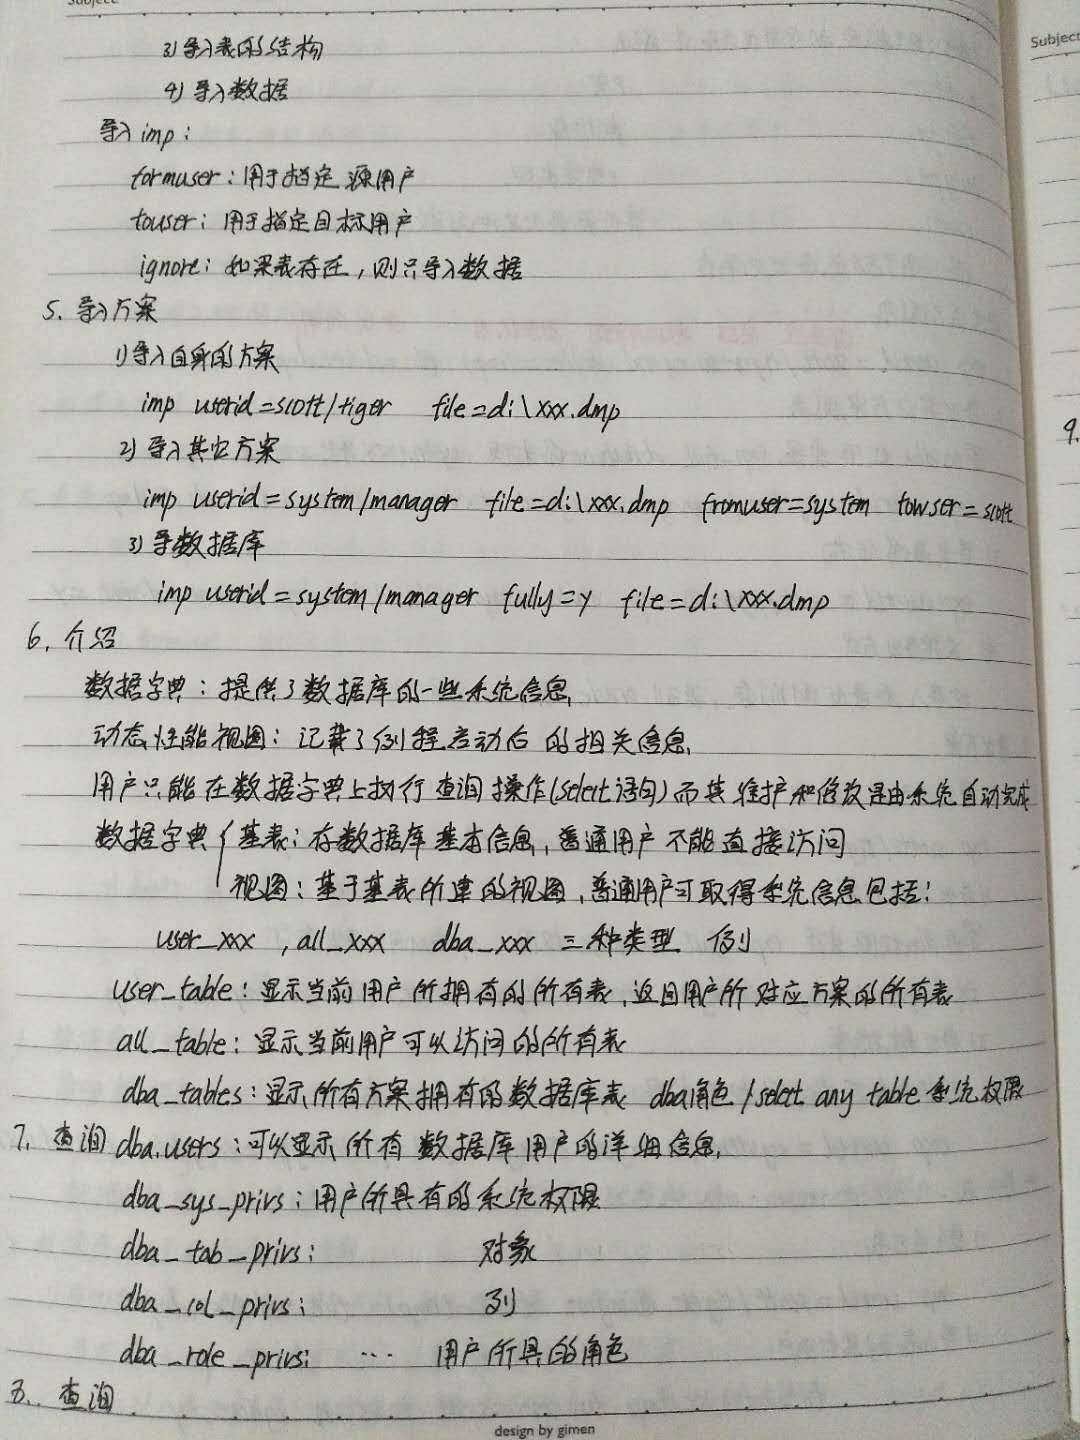 Subject
3) 导入表的结构
4) 导入数据
导入imp:
formuser:用于指定源用户
touser:用于指定目标用户
ignore:如果表存在,则只导入数据
5. 导入方案
1)导入自身的方案
imp userid=scott/tiger file=d:\xxx.dmp
2) 导入其它方案
imp userid=system/manager file=d:\xxx.dmp fromuser=system touser=scott
3) 导数据库
imp userid=system/manager fully=y file=d:\xxx.dmp
6. 介绍
数据字典:提供了数据库的一些系统信息,
动态性能视图:记载了例程启动后的相关信息,
用户只能在数据字典上执行查询操作(select语句)而其维护和修改是由系统自动完成
数据字典{基表:存数据库基本信息,普通用户不能直接访问
视图:基于基表所建的视图,普通用户可取得系统信息包括:
user_xxx ,all_xxx dba_xxx 三种类型 例
user_table:显示当前用户所拥有的所有表,返回用户所对应方案的所有表
all_table:显示当前用户可以访问的所有表
dba_tables:显示所有方案拥有的数据库表 dba角色/select any table系统权限
7. 查询dba.users:可以显示所有数据库用户的详细信息,
dba_sys_privs:用户所具有的系统权限
dba_tab_privs: 对象
dba_col_privs: 列
dba_role_privs: … 用户所具的角色
8. 查询
design by gimen
Subject
9.